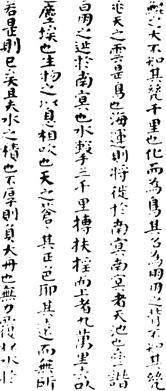 鯤之大不知其幾千里也化而為鳥其名為鵬鵬之背不知其幾
垂天之雲是鳥也海運則將徙於南冥南冥者天池也齊諧
言曰鵬之徙於南冥也水擊三千里摶扶搖而上者九萬里去以
塵埃也生物之以息相吹也天之蒼蒼其正色邪其遠而無所
若是則已矣且夫水之積也不厚則負大舟也無力覆杯水於